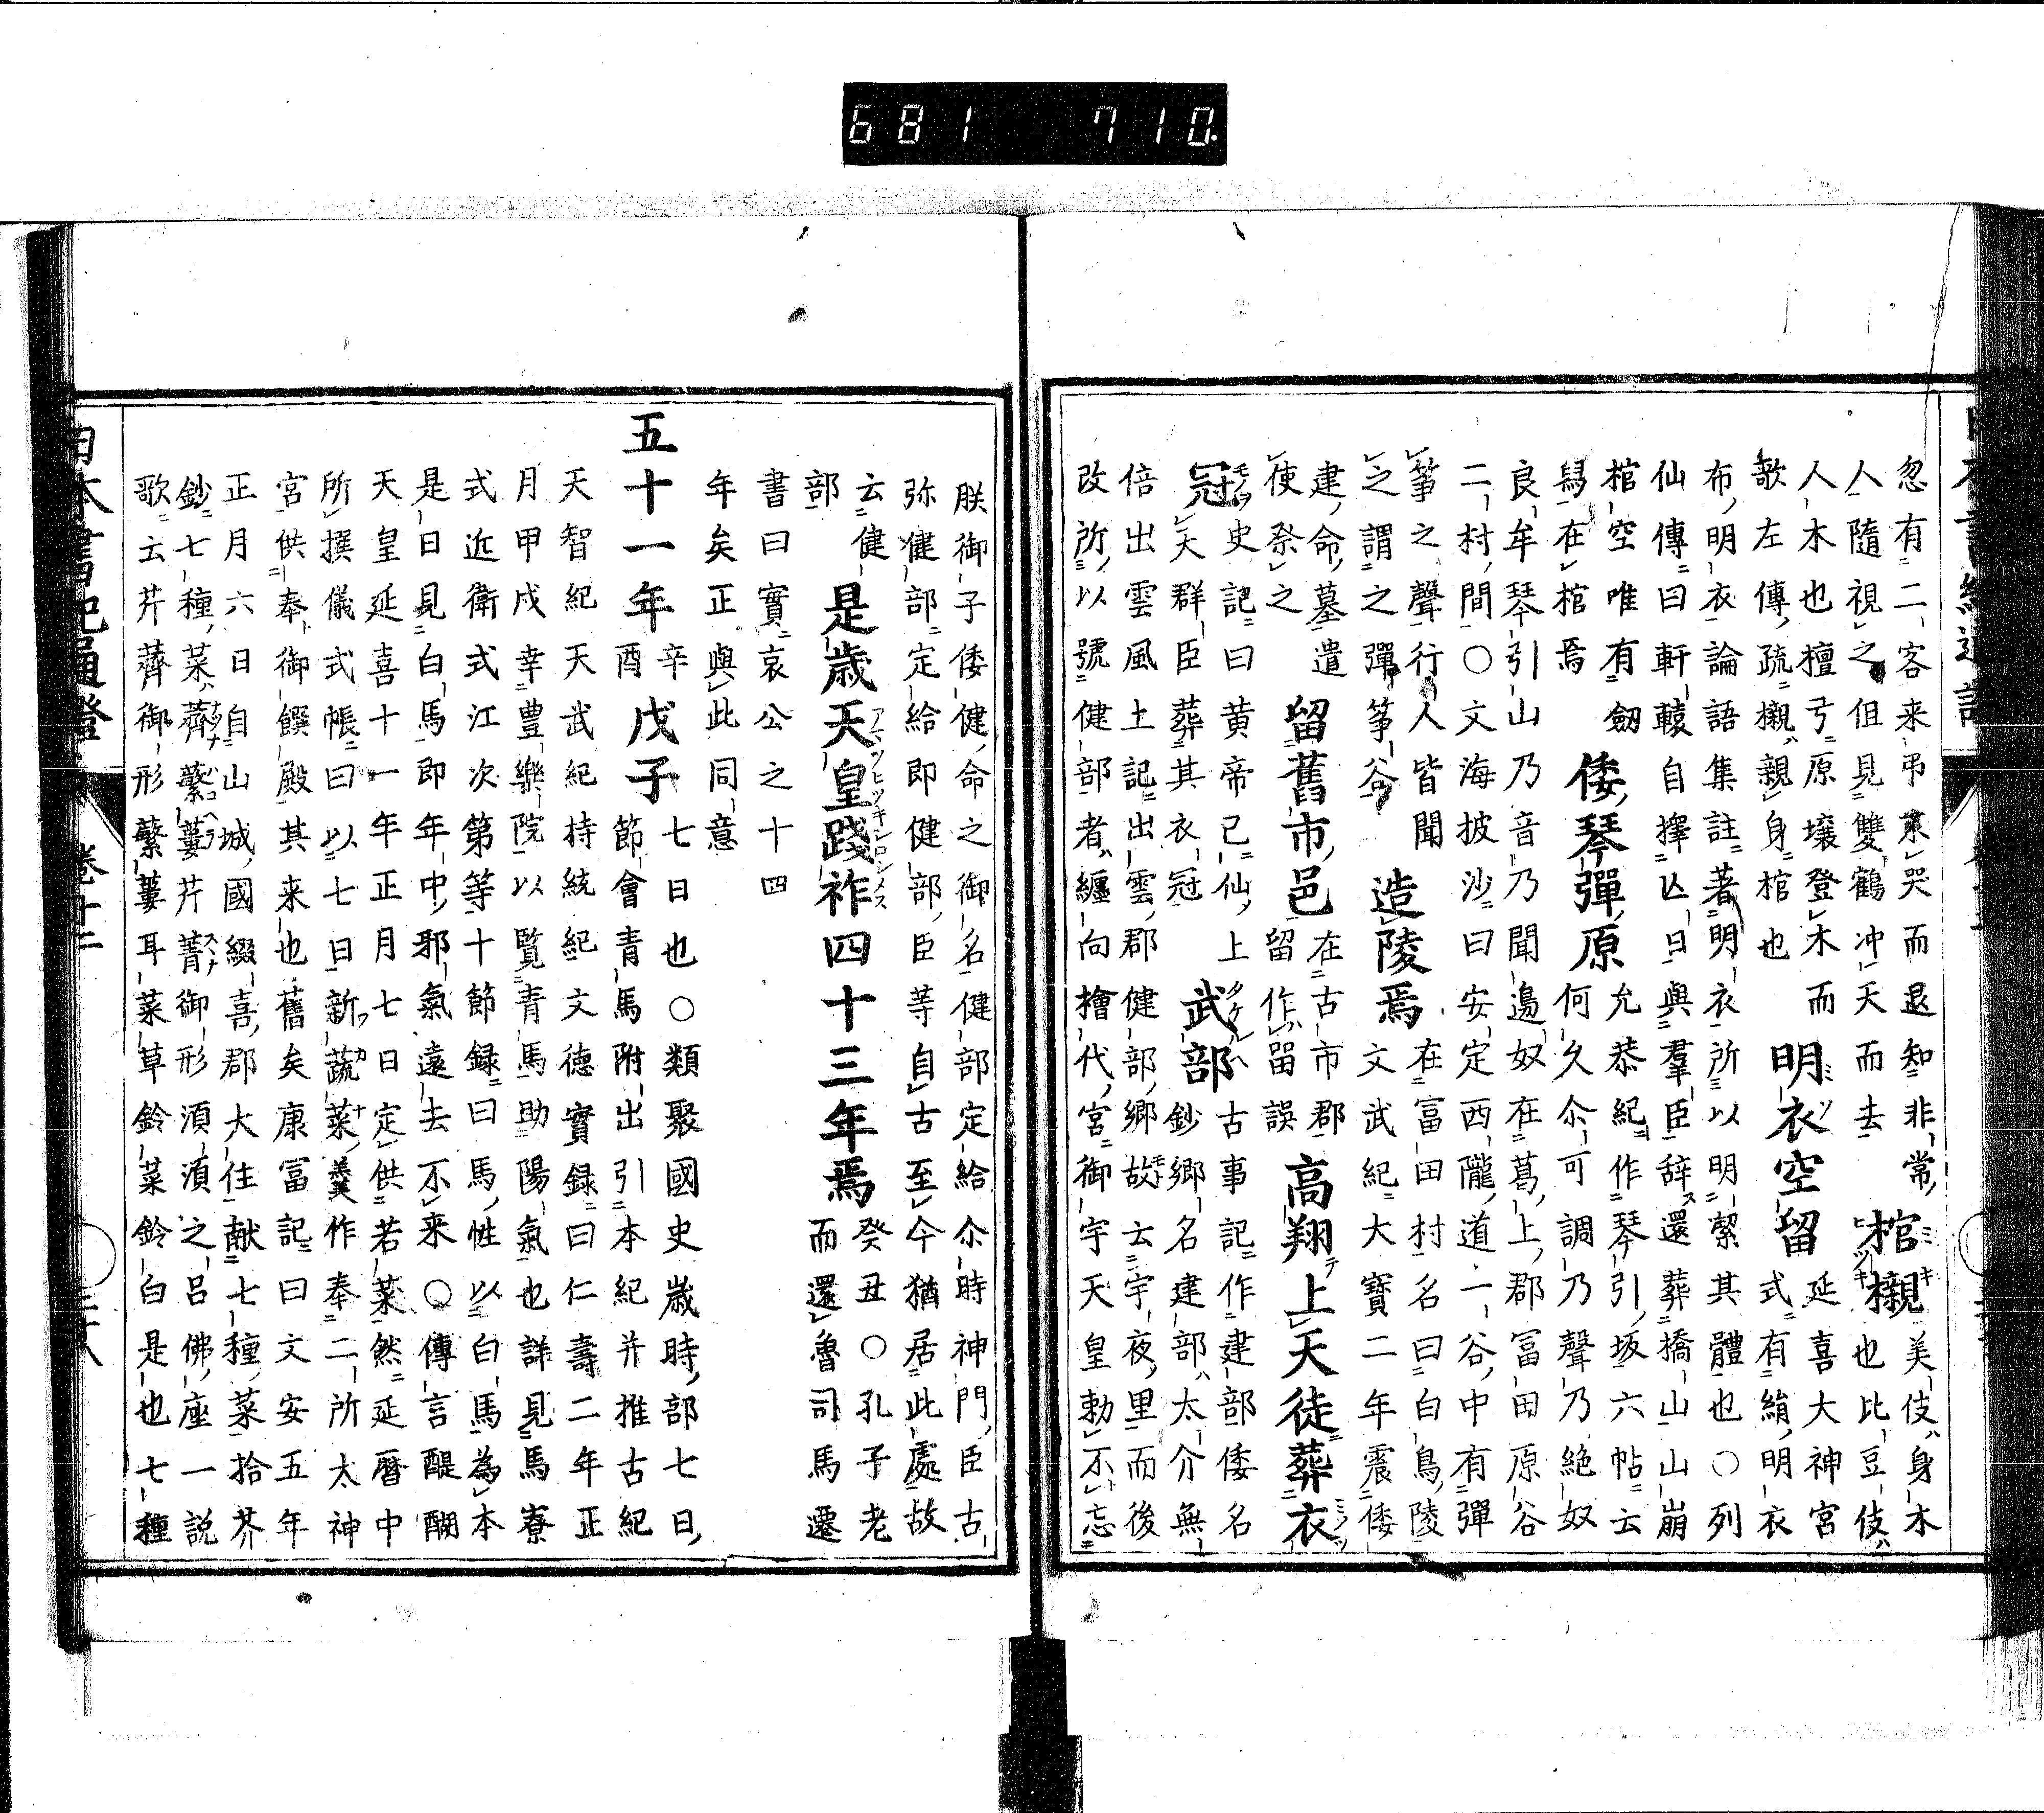 忽有二客来吊不哭而退知非常
人隨視之但見雙鶴冲天而去
棺櫬
美伎身木
也比豆伎
人木也檀弓原壤登木而
歌左傳疏櫬親身棺也
明衣空留
延喜大神宮
式有絹明衣
布明衣論語集註著明衣所以明潔其體也○列
仙傳曰軒轅自擇亡日與羣臣辞還葬橋山山崩
棺空唯有劔
舄在棺焉
倭琴彈原
允恭紀作琴引坂六帖云
何久尒可調乃聲乃絶奴
良牟琴引山乃音乃聞邉奴在葛上郡冨田原谷
二村間○文海披沙曰安定西隴道一谷中有彈
箏之聲行人皆聞
之謂之彈箏谷
造陵焉
在冨田村名曰白鳥陵
文武紀大寶二年震倭
建命墓遣
使祭之
留舊市邑
在古市郡
留作畄誤
高翔上天徒葬衣
冠
史記曰黄帝已仙上
天群臣葬其衣冠
武部
古事記作建部倭名
鈔郷名建部太介無
倍出雲風土記出雲郡健部郷故云宇夜里而後
改所以號健部者纏向檜代宮御宇天皇勅不忘
朕御子倭健命之御名健部定給尒時神門臣古
弥健部定給即健部臣等自古至今猶居此處故
云健
部
是歳天皇踐祚四十三年焉
癸丑○孔子老
而還魯司馬遷
書曰實哀公之十四
年矣正與此同意
五十一年
辛
酉
戊子
七日也○類聚國史歳時部七日
節會青馬附出引本紀并推古紀
天智紀天武紀持統紀文德實録曰仁壽二年正
月甲戌幸豊樂院以覧青馬助陽氣也詳見馬寮
式近衛式江次第等十節録曰馬性以白馬為本
是日見白馬即年中邪氣遠去不来○傳言醍醐
天皇延喜十一年正月七日定供若菜然延暦中
所撰儀式帳曰以七日新蔬菜羹作奉二所太神
宮供奉御饌殿其来也舊矣康冨記曰文安五年
正月六日自山城國綴喜郡大住献七種菜拾芥
鈔七種菜薺蘩蔞芹菁御形湏湏之呂佛座一説
歌云芹薺御形蘩蔞耳菜草鈴菜鈴白是也七種
日本書紀通證
卷十二